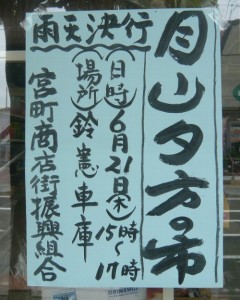 月山夕方市
(日時)6月21日(木)15時〜17時
(場所)鈴憲車庫
雨天決行
宮町商店街振興組合